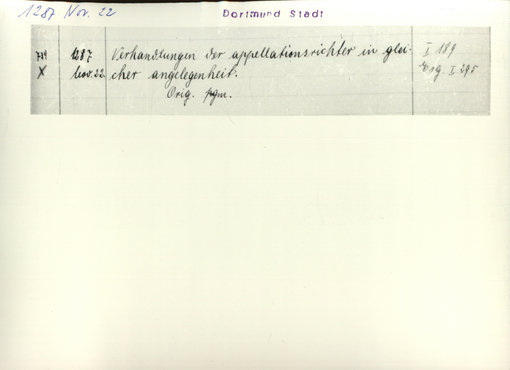 1287 Nov. 22 Dortmund Stadt
1287 Verhandlungen der appellationsrichter in glei- I 189
X Nov. 22. cher angelegenheit. Erg. I 295
Orig. pgm.